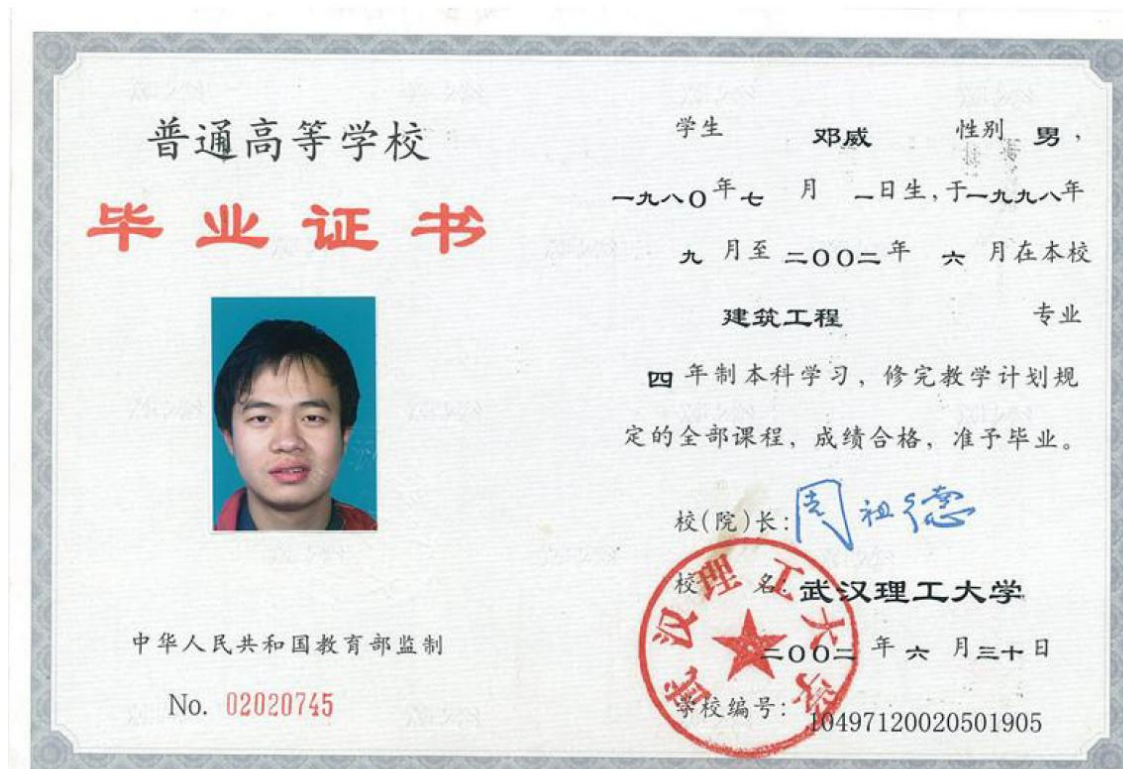 普通高等学校
毕业证书
中华人民共和国教育部监制
No. 02020745
学生 邓威 性别 男,
一九八〇年七 月 一日生,于一九九八年
九 月至 二〇〇二年 六 月在本校
建筑工程 专业
四 年制本科学习,修完教学计划规
定的全部课程、成绩合格,准予毕业。
校(院)长: 周祖德
校 名: 武汉理工大学
二〇〇二 年 六 月三十日
学校编号: 104971200205019​05
武汉理工大学